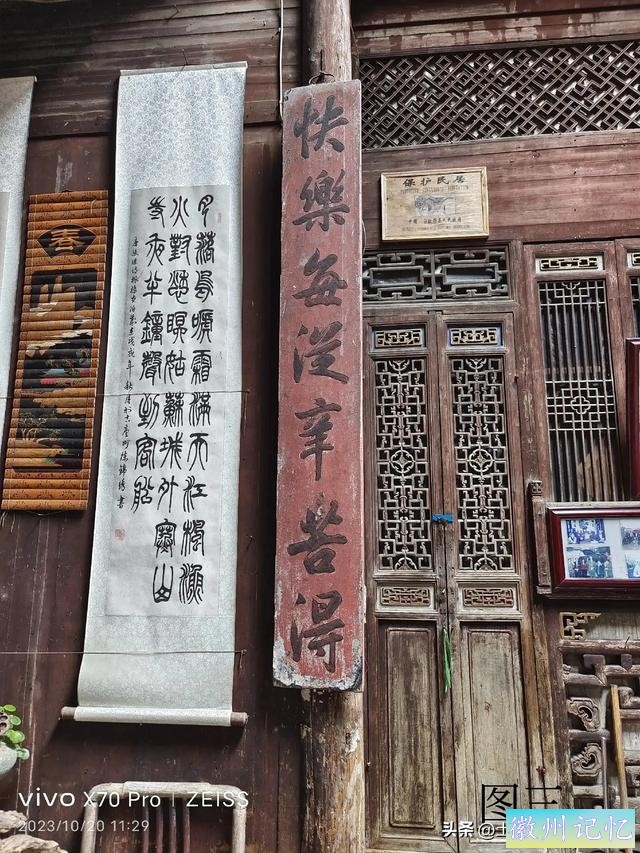 快樂每從辛苦得
月落烏啼霜滿天江楓漁
火對愁眠姑蘇城外寒山
寺夜半鐘聲到客船
春
保护民居
vivo X70 Pro | ZEISS
2023/10/20 11:29
头条
徽州记忆